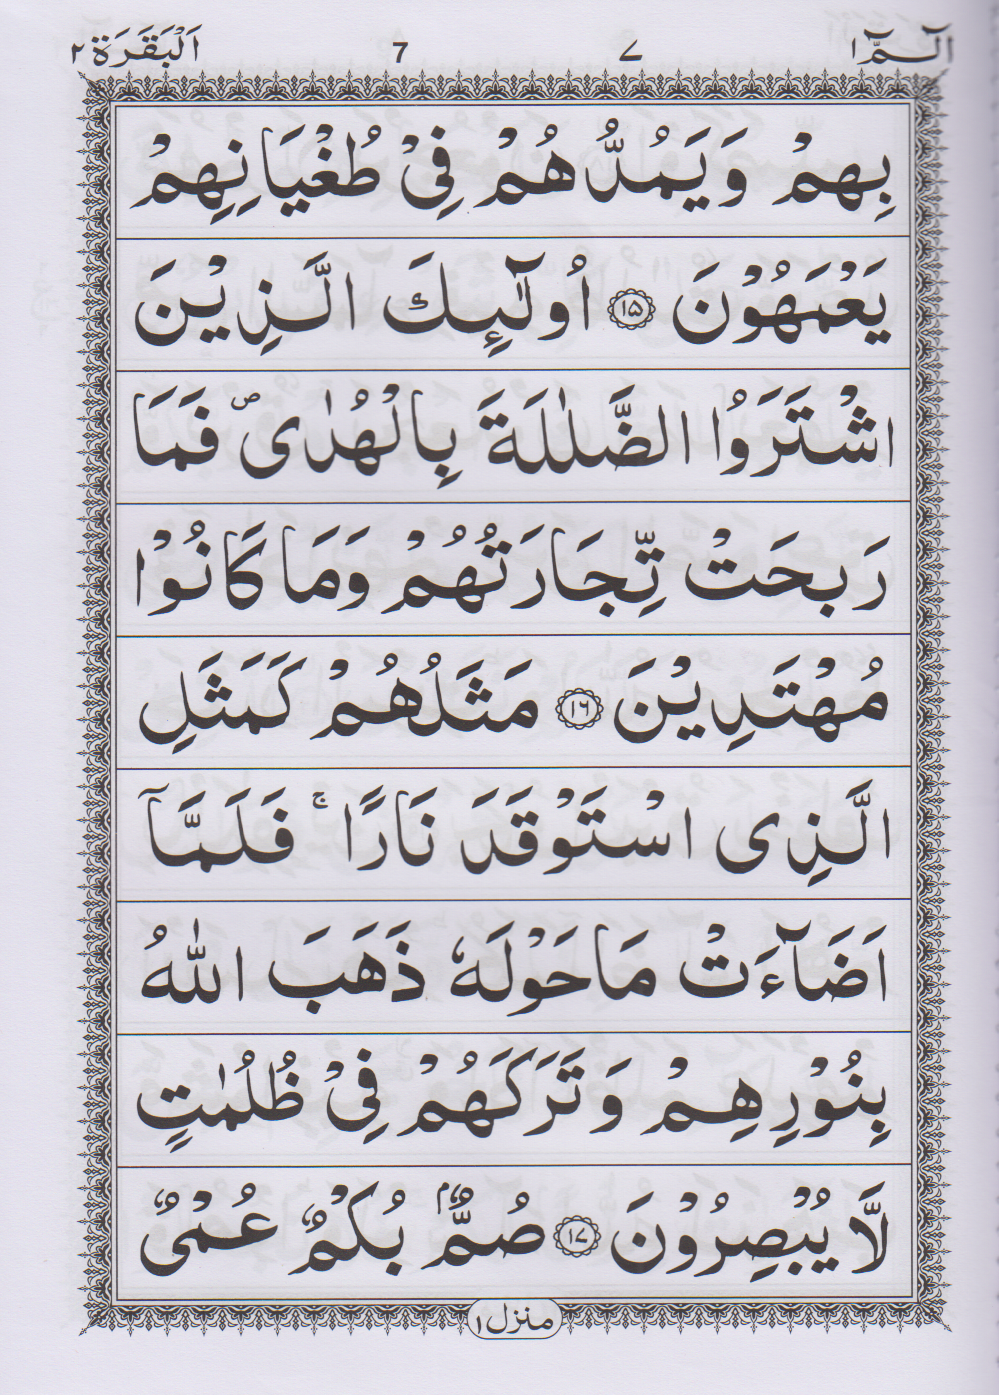 الٓـمّٓ ١ ٧ 7 اَلْبَقَرَة ٢
بِهِمْ وَيَمُدُّهُمْ فِىْ طُغْيَانِهِمْ
يَعْمَهُوْنَ ﴿١٥﴾ اُولٰٓئِكَ الَّذِيْنَ
اشْتَرَوُا الضَّلٰلَةَ بِالْهُدٰى ۖ فَمَا
رَبِحَتْ تِّجَارَتُهُمْ وَمَا كَانُوْا
مُهْتَدِيْنَ ﴿١٦﴾ مَثَلُهُمْ كَمَثَلِ
الَّذِى اسْتَوْقَدَ نَارًا ۚ فَلَمَّآ
اَضَآءَتْ مَا حَوْلَهٗ ذَهَبَ اللّٰهُ
بِنُوْرِهِمْ وَتَرَكَهُمْ فِىْ ظُلُمٰتٍ
لَّا يُبْصِرُوْنَ ﴿١٧﴾ صُمٌّۢ بُكْمٌ عُمْىٌ
منزل ١